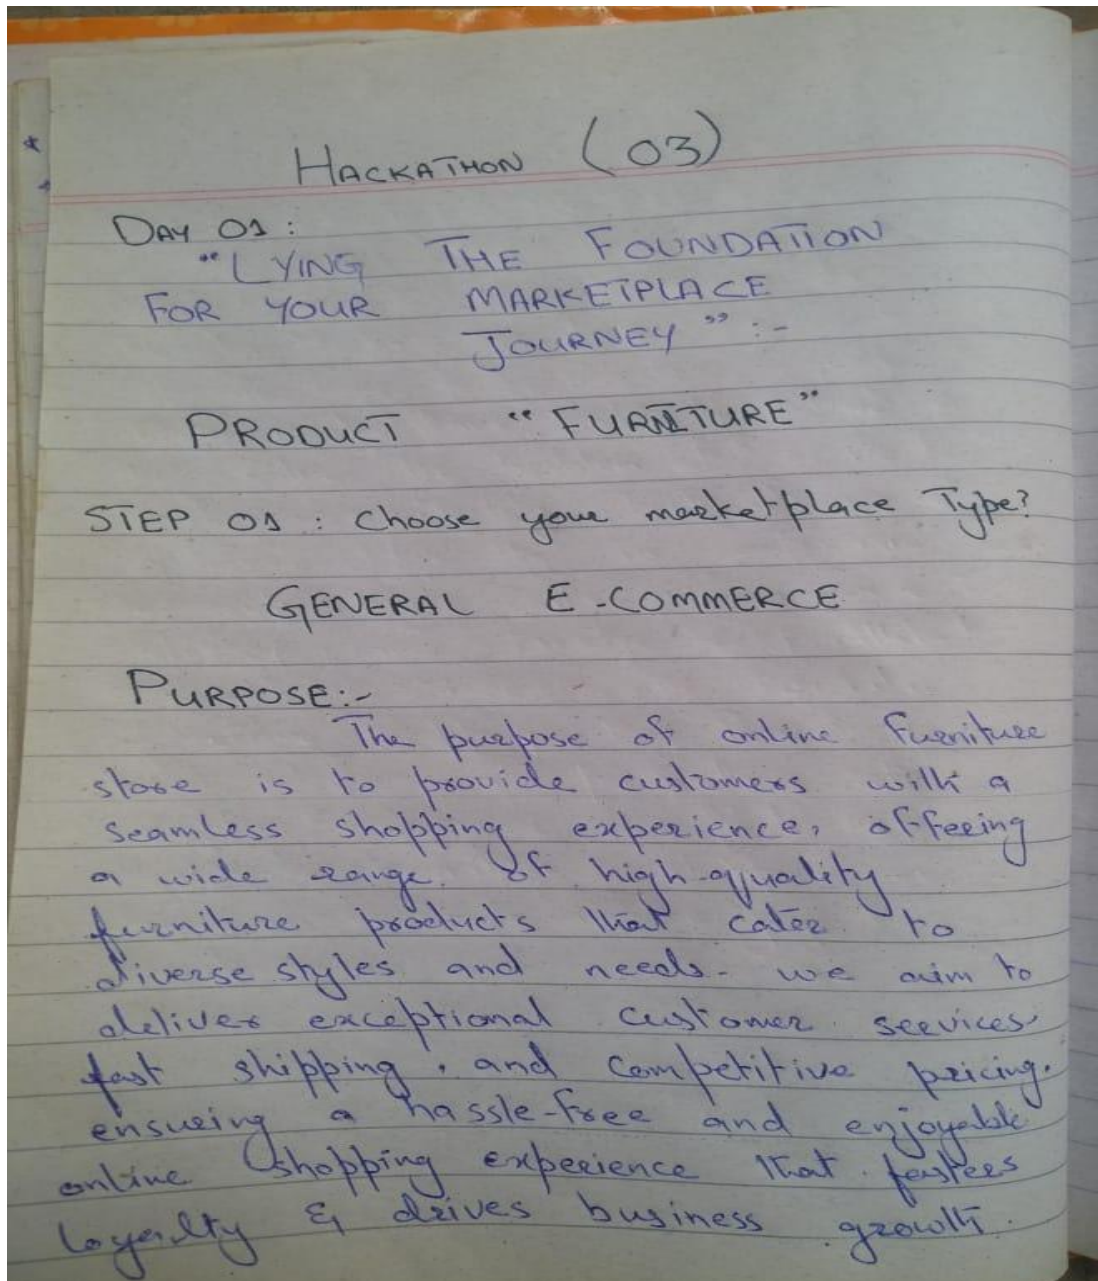 HACKATHON (03)
DAY 01:
"LYING THE FOUNDATION
FOR YOUR MARKETPLACE
JOURNEY" :-
PRODUCT "FURNITURE"
STEP 01 : Choose your marketplace Type?
GENERAL E-COMMERCE
PURPOSE:-
The purpose of online furniture
store is to provide customers with a
seamless shopping experience, offering
a wide range of high-quality
furniture products that cater to
diverse styles and needs. we aim to
deliver exceptional customer services,
fast shipping, and competitive pricing.
ensuring a hassle-free and enjoyable
online shopping experience that fosters
loyalty & drives business growth.